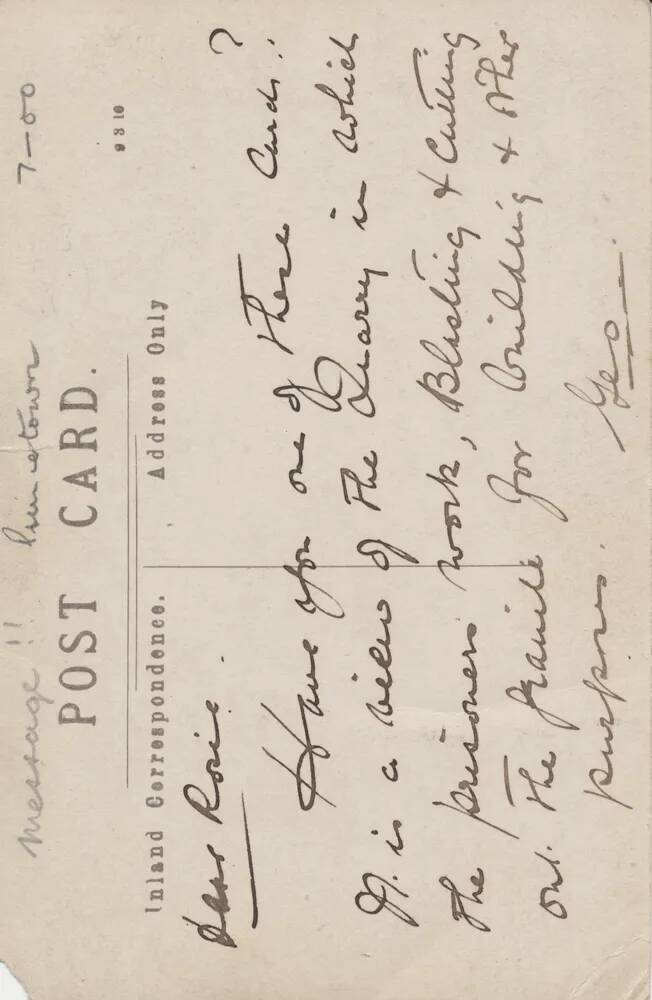 message !! Princetown 7-00
POST CARD.
9310
Inland Correspondence. Address Only
Dear Rosie.
Have you one of these Cards.?
It is a view of the Quarry in which
the prisoners work, Blasting & Cutting
out the granite for building & other
purposes. Geo